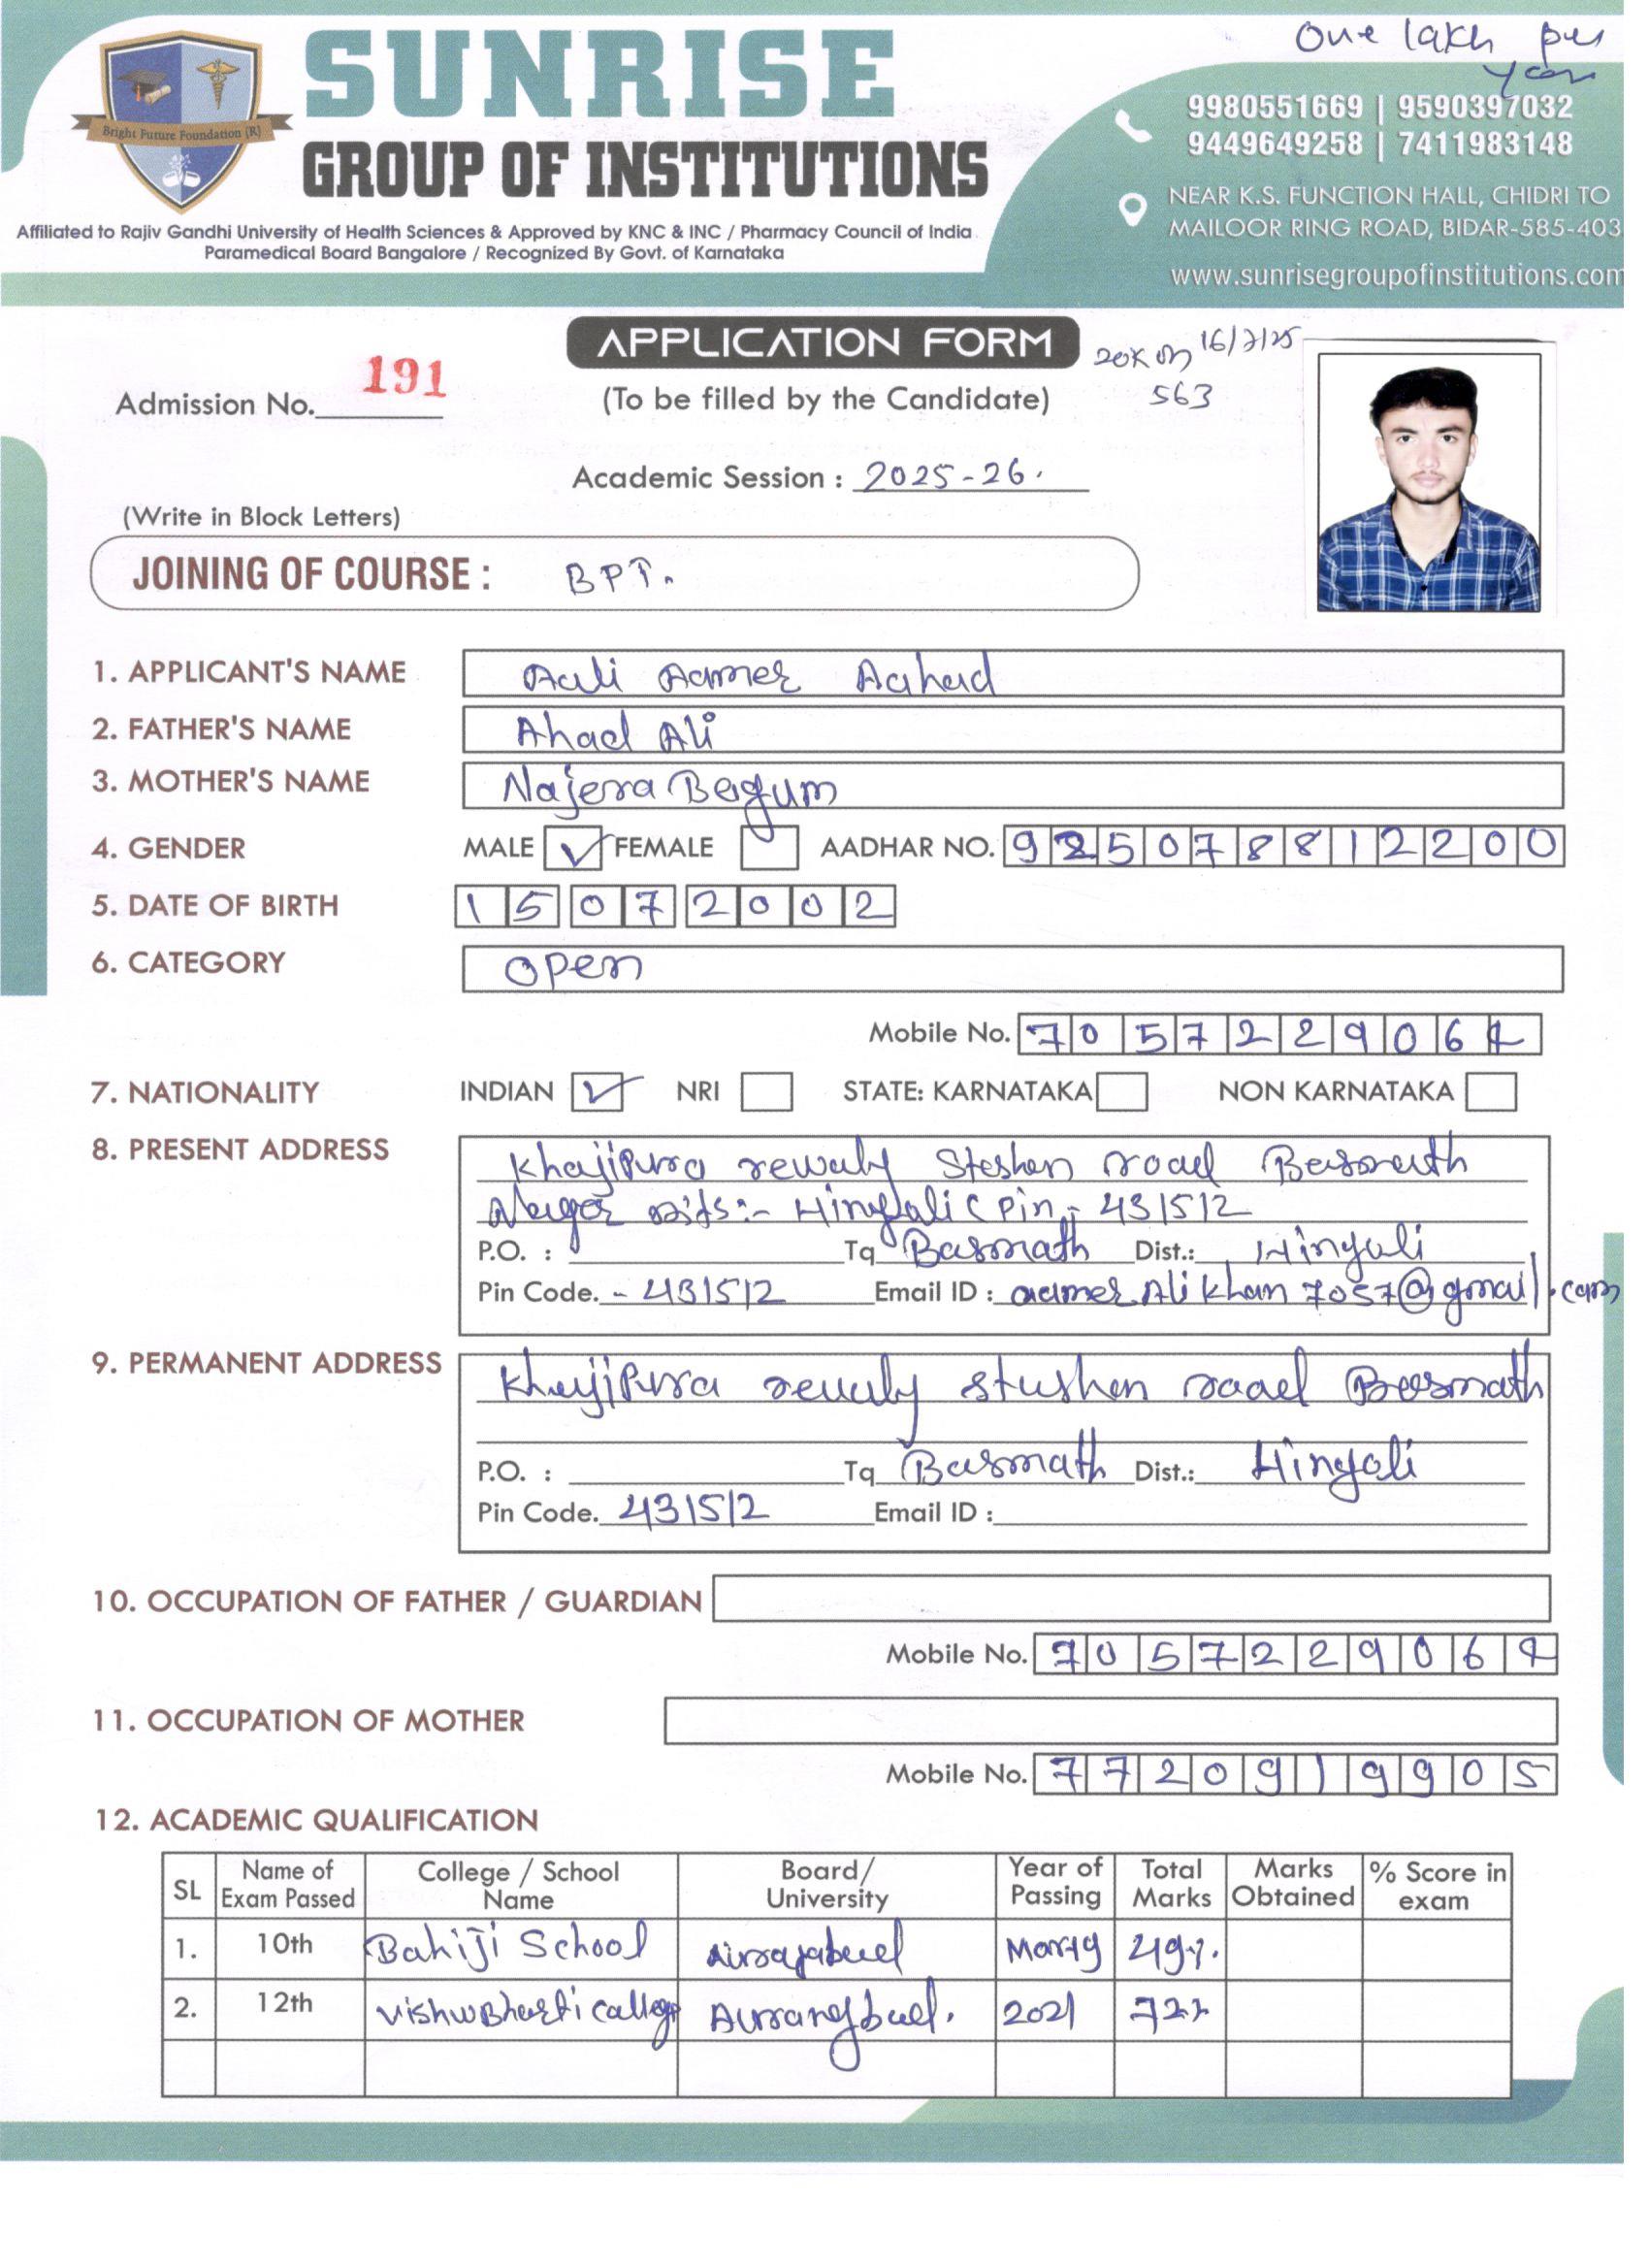 One lakh per
year
SUNRISE
GROUP OF INSTITUTIONS
Bright Future Foundation (R)
Affiliated to Rajiv Gandhi University of Health Sciences & Approved by KNC & INC / Pharmacy Council of India
Paramedical Board Bangalore / Recognized By Govt. of Karnataka
9980551669 | 9590397032
9449649258 | 7411983148
NEAR K.S. FUNCTION HALL, CHIDRI TO
MAILOOR RING ROAD, BIDAR-585-403
www.sunrisegroupofinstitutions.com
APPLICATION FORM
20K on 16/7/25
563
Admission No. 191
(To be filled by the Candidate)
Academic Session : 2025-26.
(Write in Block Letters)
JOINING OF COURSE : BPT.
1. APPLICANT'S NAME Aali Aamer Aahad
2. FATHER'S NAME Ahad Ali
3. MOTHER'S NAME Najera Begum
4. GENDER MALE FEMALE AADHAR NO. 925078812200
5. DATE OF BIRTH 15 07 2002
6. CATEGORY open
Mobile No. 7057229064
7. NATIONALITY INDIAN NRI STATE: KARNATAKA NON KARNATAKA
8. PRESENT ADDRESS Khajipura Steshen road Basmath
Nagar Hingali Pin - 431512
P.O. : Tq Basmath Dist.: Hingali
Pin Code. - 431512 Email ID : aamerAlikhan7057@gmail.com
9. PERMANENT ADDRESS Khajipura stashen road Basmath
P.O. : Tq Basmath Dist.: Hingoli
Pin Code. 431512 Email ID :
10. OCCUPATION OF FATHER / GUARDIAN
Mobile No. 7057229064
11. OCCUPATION OF MOTHER
Mobile No. 7720919905
12. ACADEMIC QUALIFICATION
SL Name of Exam Passed College / School Name Board/ University Year of Passing Total Marks Marks Obtained % Score in exam
1. 10th Bahiji School 49%.
2. 12th VishwBharti College Aurangbad. 2021 72%